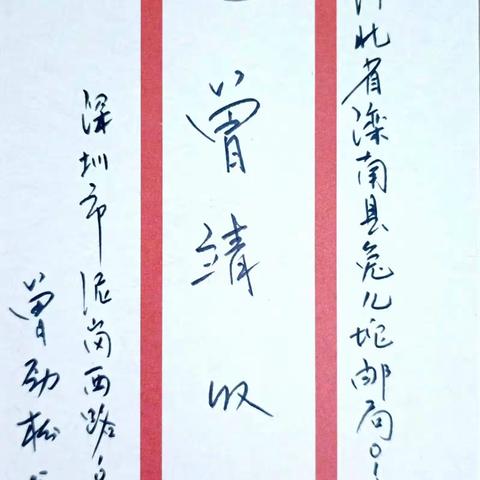 河北省滦南县兔儿坨邮局
曾靖 收
深圳市泥岗西路
曾劲松